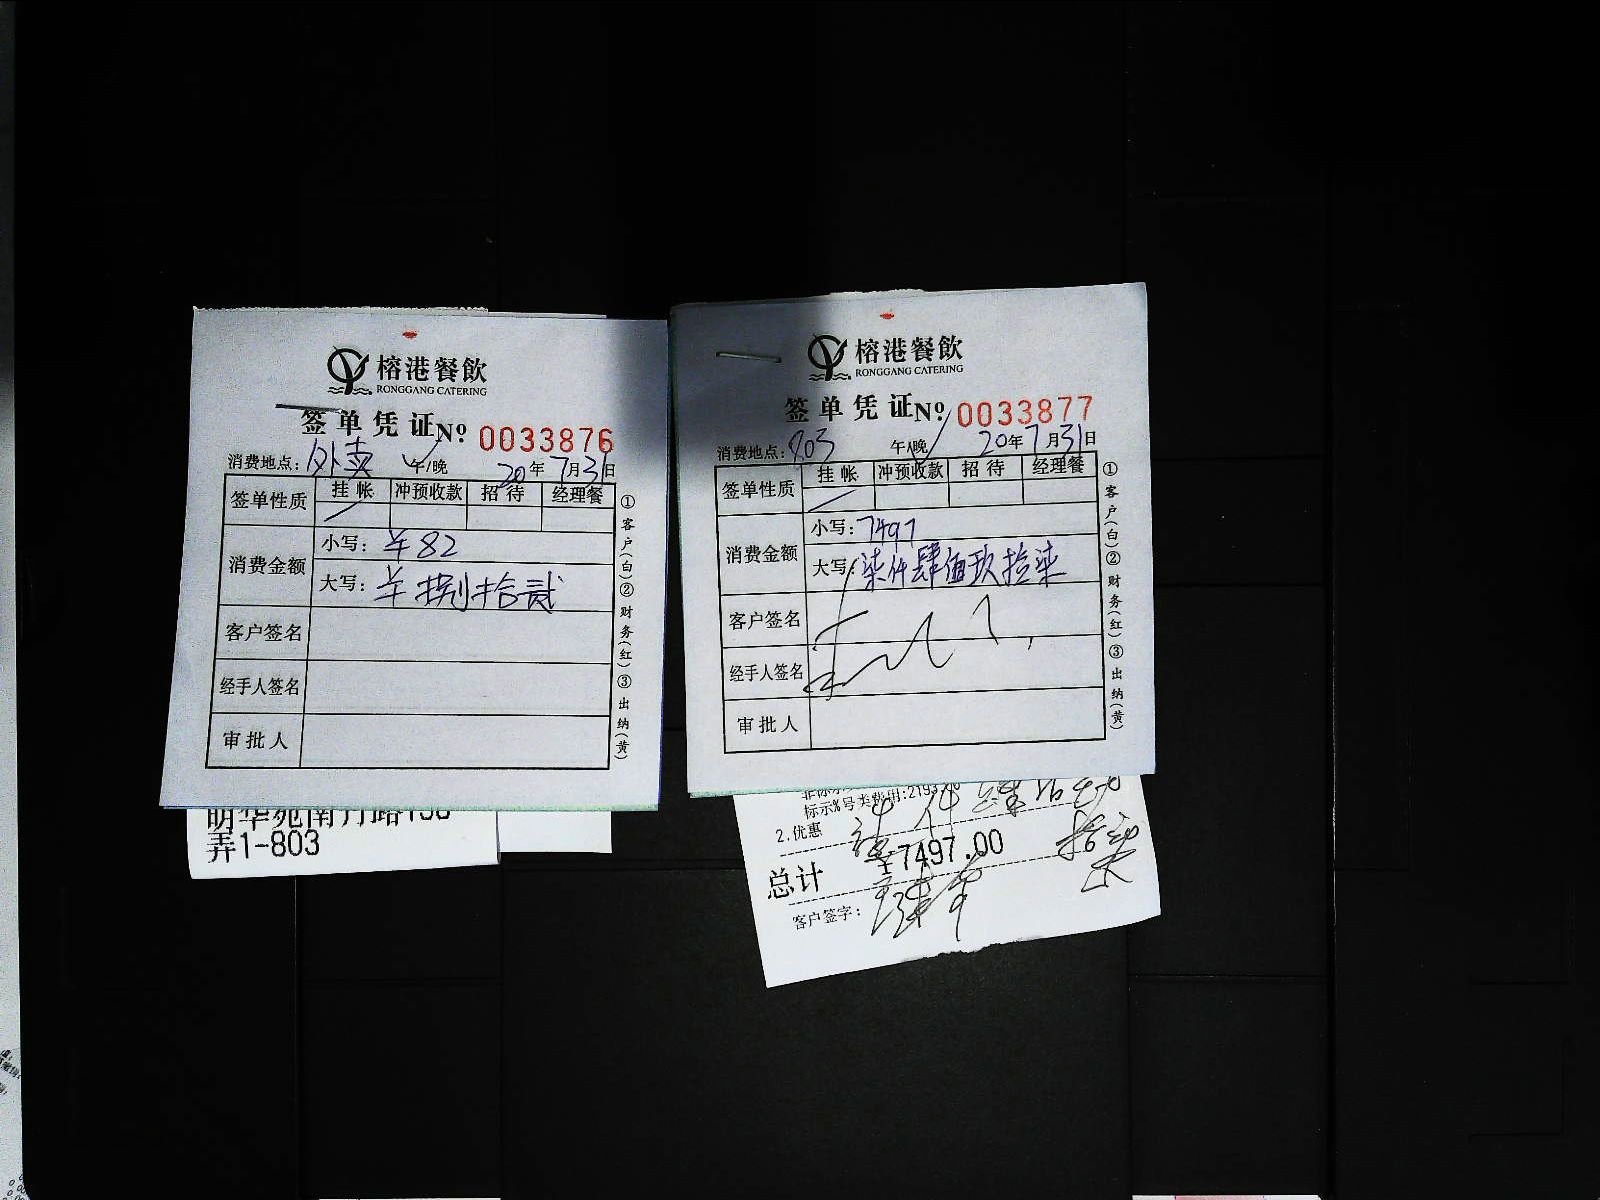 榕港餐飲
RONGGANG CATERING
签单凭证 No 0033876
消费地点: 外卖 午/晚 20年7月31日
签单性质 挂帐 冲预收款 招待 经理餐
消费金额 小写: ¥82
大写: ¥捌拾贰
客户签名
经手人签名
审批人
①客户(白)②财务(红)③出纳(黄)
弄1-803
榕港餐飲
RONGGANG CATERING
签单凭证 No 0033877
消费地点: 803 午/晚 20年7月31日
签单性质 挂帐 冲预收款 招待 经理餐
消费金额 小写: 7497
大写: 柒仟肆佰玖拾柒
客户签名
经手人签名
审批人
①客户(白)②财务(红)③出纳(黄)
标示%号类费用:2193
2.优惠
总计 ¥7497.00
客户签字: